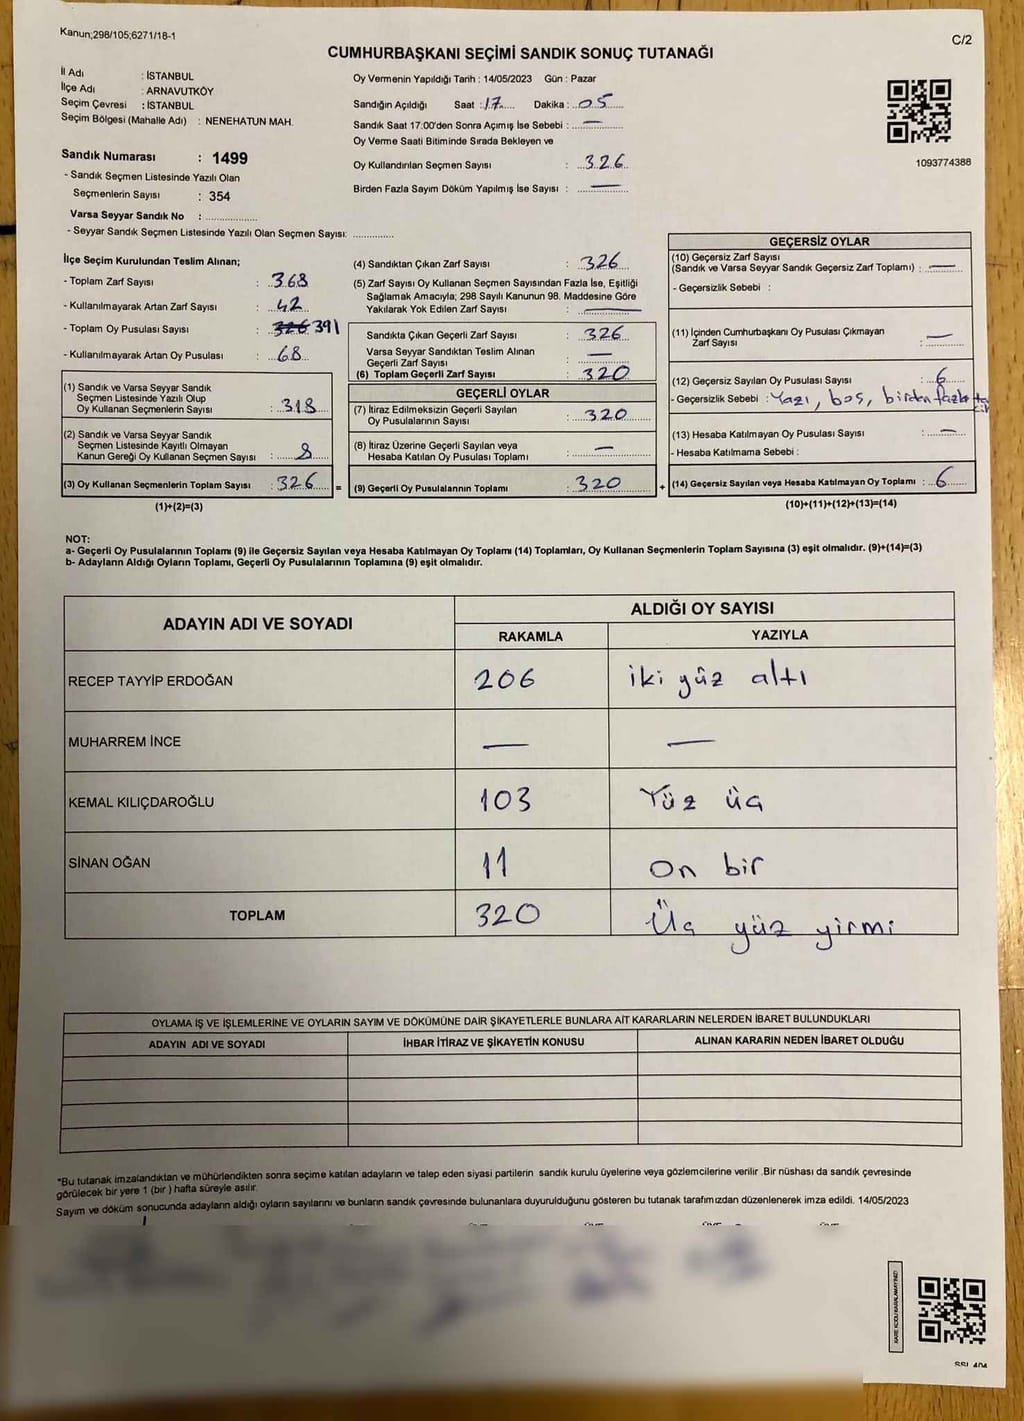 Kanun;298/105;6271/18-1
C/2
CUMHURBAŞKANI SEÇİMİ SANDIK SONUÇ TUTANAĞI
İl Adı : İSTANBUL
İlçe Adı : ARNAVUTKÖY
Seçim Çevresi : İSTANBUL
Seçim Bölgesi (Mahalle Adı) : NENEHATUN MAH.
Sandık Numarası : 1499
- Sandık Seçmen Listesinde Yazılı Olan
Seçmenlerin Sayısı : 354
Varsa Seyyar Sandık No : ..................
- Seyyar Sandık Seçmen Listesinde Yazılı Olan Seçmen Sayısı: ..............
Oy Vermenin Yapıldığı Tarih : 14/05/2023 Gün : Pazar
Sandığın Açıldığı Saat : 17 Dakika : 05
Sandık Saat 17.00'den Sonra Açımış İse Sebebi : —
Oy Verme Saati Bitiminde Sırada Bekleyen ve
Oy Kullandırılan Seçmen Sayısı : 326
Birden Fazla Sayım Döküm Yapılmış İse Sayısı : —
1093774388
İlçe Seçim Kurulundan Teslim Alınan;
- Toplam Zarf Sayısı : 368
- Kullanılmayarak Artan Zarf Sayısı : 42
- Toplam Oy Pusulası Sayısı : 326 391
- Kullanılmayarak Artan Oy Pusulası : 68
(1) Sandık ve Varsa Seyyar Sandık
Seçmen Listesinde Yazılı Olup
Oy Kullanan Seçmenlerin Sayısı : 318
(2) Sandık ve Varsa Seyyar Sandık
Seçmen Listesinde Kayıtlı Olmayan
Kanun Gereği Oy Kullanan Seçmen Sayısı : 8
(3) Oy Kullanan Seçmenlerin Toplam Sayısı : 326 =
(1)+(2)=(3)
(4) Sandıktan Çıkan Zarf Sayısı : 326
(5) Zarf Sayısı Oy Kullanan Seçmen Sayısından Fazla İse, Eşitliği
Sağlamak Amacıyla; 298 Sayılı Kanunun 98. Maddesine Göre
Yakılarak Yok Edilen Zarf Sayısı : —
Sandıkta Çıkan Geçerli Zarf Sayısı : 326
Varsa Seyyar Sandıktan Teslim Alınan
Geçerli Zarf Sayısı : —
(6) Toplam Geçerli Zarf Sayısı : 320
GEÇERLİ OYLAR
(7) İtiraz Edilmeksizin Geçerli Sayılan
Oy Pusulalarının Sayısı : 320
(8) İtiraz Üzerine Geçerli Sayılan veya
Hesaba Katılan Oy Pusulası Toplamı : —
(9) Geçerli Oy Pusulalarının Toplamı : 320 +
GEÇERSİZ OYLAR
(10) Geçersiz Zarf Sayısı
(Sandık ve Varsa Seyyar Sandık Geçersiz Zarf Toplamı) : —
- Geçersizlik Sebebi :
(11) İçinden Cumhurbaşkanı Oy Pusulası Çıkmayan
Zarf Sayısı : —
(12) Geçersiz Sayılan Oy Pusulası Sayısı : 6
- Geçersizlik Sebebi : Yazı, boş, birden fazla
(13) Hesaba Katılmayan Oy Pusulası Sayısı : —
- Hesaba Katılmama Sebebi :
(14) Geçersiz Sayılan veya Hesaba Katılmayan Oy Toplamı : 6
(10)+(11)+(12)+(13)=(14)
NOT:
a- Geçerli Oy Pusulalarının Toplamı (9) ile Geçersiz Sayılan veya Hesaba Katılmayan Oy Toplamı (14) Toplamları, Oy Kullanan Seçmenlerin Toplam Sayısına (3) eşit olmalıdır. (9)+(14)=(3)
b- Adayların Aldığı Oyların Toplamı, Geçerli Oy Pusulalarının Toplamına (9) eşit olmalıdır.
ADAYIN ADI VE SOYADI
ALDIĞI OY SAYISI
RAKAMLA YAZIYLA
RECEP TAYYİP ERDOĞAN 206 iki yüz altı
MUHARREM İNCE — —
KEMAL KILIÇDAROĞLU 103 Yüz üç
SİNAN OĞAN 11 On bir
TOPLAM 320 Üç yüz yirmi
OYLAMA İŞ VE İŞLEMLERİNE VE OYLARIN SAYIM VE DÖKÜMÜNE DAİR ŞİKAYETLERLE BUNLARA AİT KARARLARIN NELERDEN İBARET BULUNDUKLARI
ADAYIN ADI VE SOYADI İHBAR İTİRAZ VE ŞİKAYETİN KONUSU ALINAN KARARIN NEDEN İBARET OLDUĞU
*Bu tutanak imzalandıktan ve mühürlendikten sonra seçime katılan adayların ve talep eden siyasi partilerin sandık kurulu üyelerine veya gözlemcilerine verilir .Bir nüshası da sandık çevresinde
görülecek bir yere 1 (bir ) hafta süreyle asılır.
Sayım ve döküm sonucunda adayların aldığı oyların sayılarını ve bunların sandık çevresinde bulunanlara duyurulduğunu gösteren bu tutanak tarafımızdan düzenlenerek imza edildi. 14/05/2023
KARE KODU KARALAMAYINIZ!